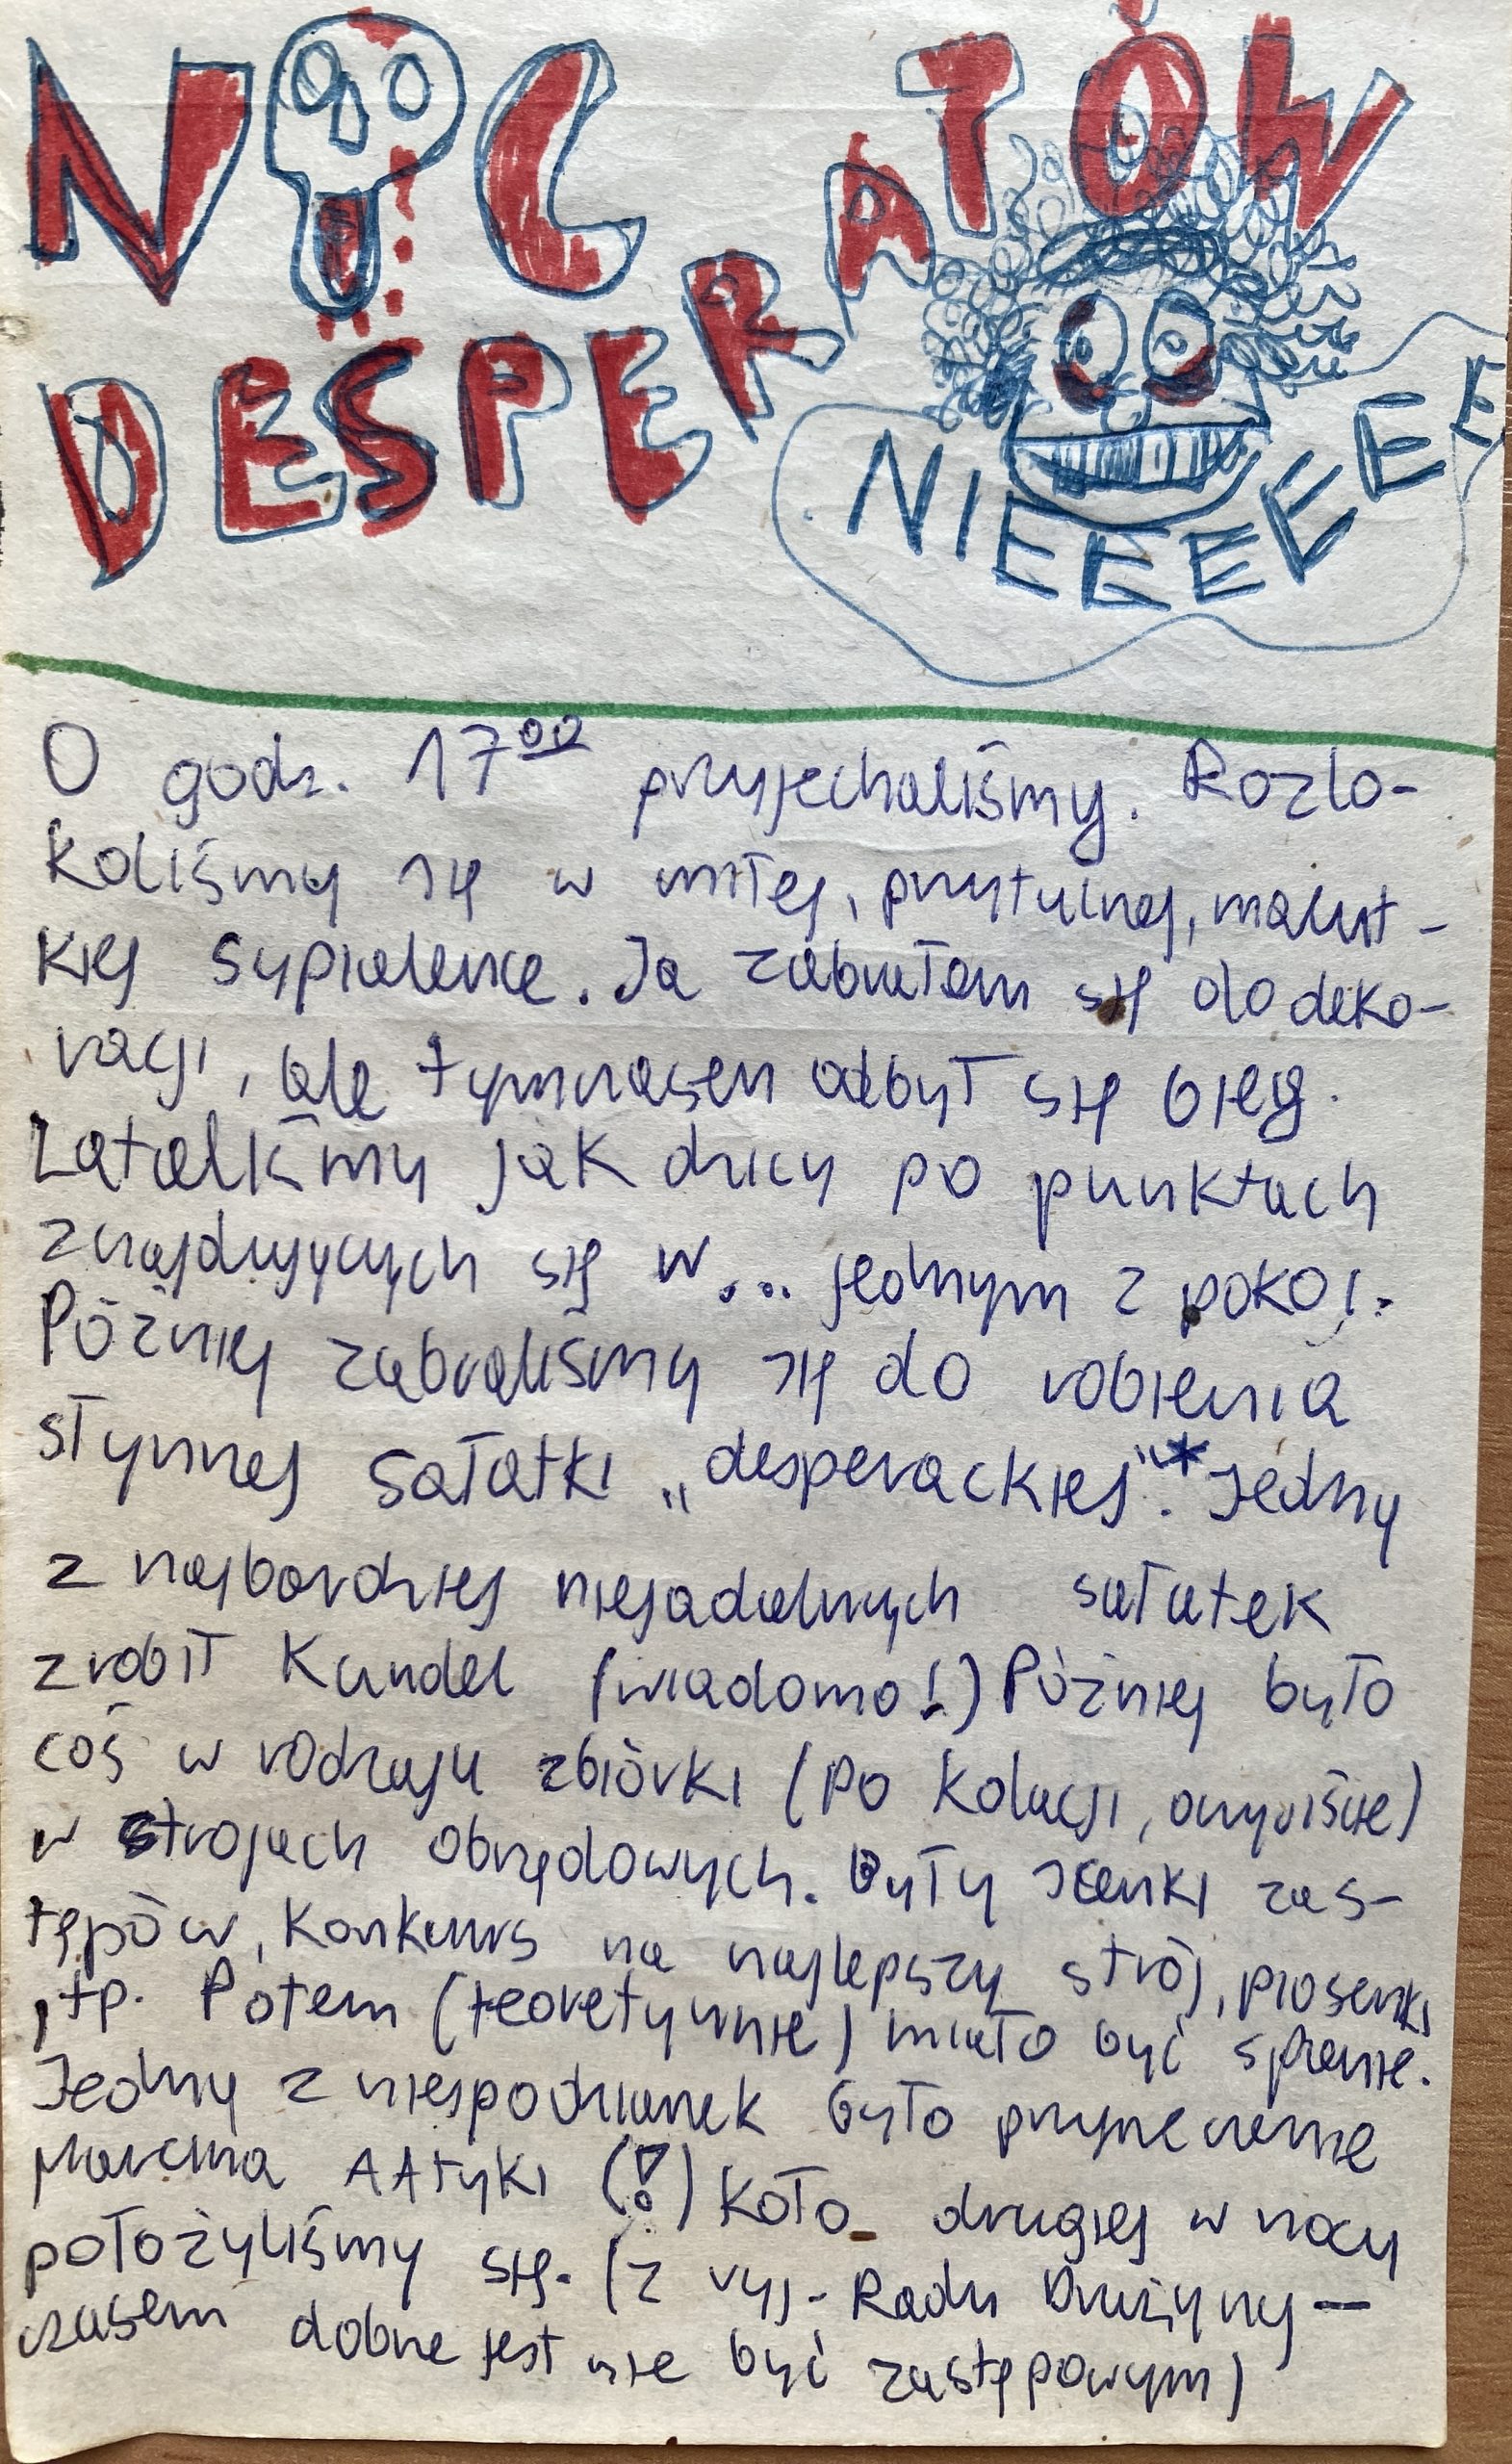 NOC
DESPERATÓW
NIEEEEEEE
O godz. 17⁰⁰ przyjechaliśmy. Rozlo-
koliśmy się w miłej, przytulnej, malut-
kiej sypialence. Ja zabrałam się do deko-
racji, ale tymczasem odbył się bieg.
Lataliśmy jak dzicy po punktach
znajdujących się w... jednym z pokoi.
Później zabraliśmy się do robienia
słynnej sałatki „desperackiej"*. Jedną
z najbardziej niejadalnych sałatek
zrobił Kundel (wiadomo!) Później było
coś w rodzaju zbiórki (po kolacji, oczywiście)
w strojach obrzędowych. Były scenki zas-
tępów, konkurs na najlepszy strój, piosenki
itp. Potem (teoretycznie) miało być spanie.
Jedną z niespodzianek było
Marcina (!) Koło drugiej w nocy
położyliśmy się. (z wyj. Rady Drużyny —
czasem dobrze jest nie być zastępowym)